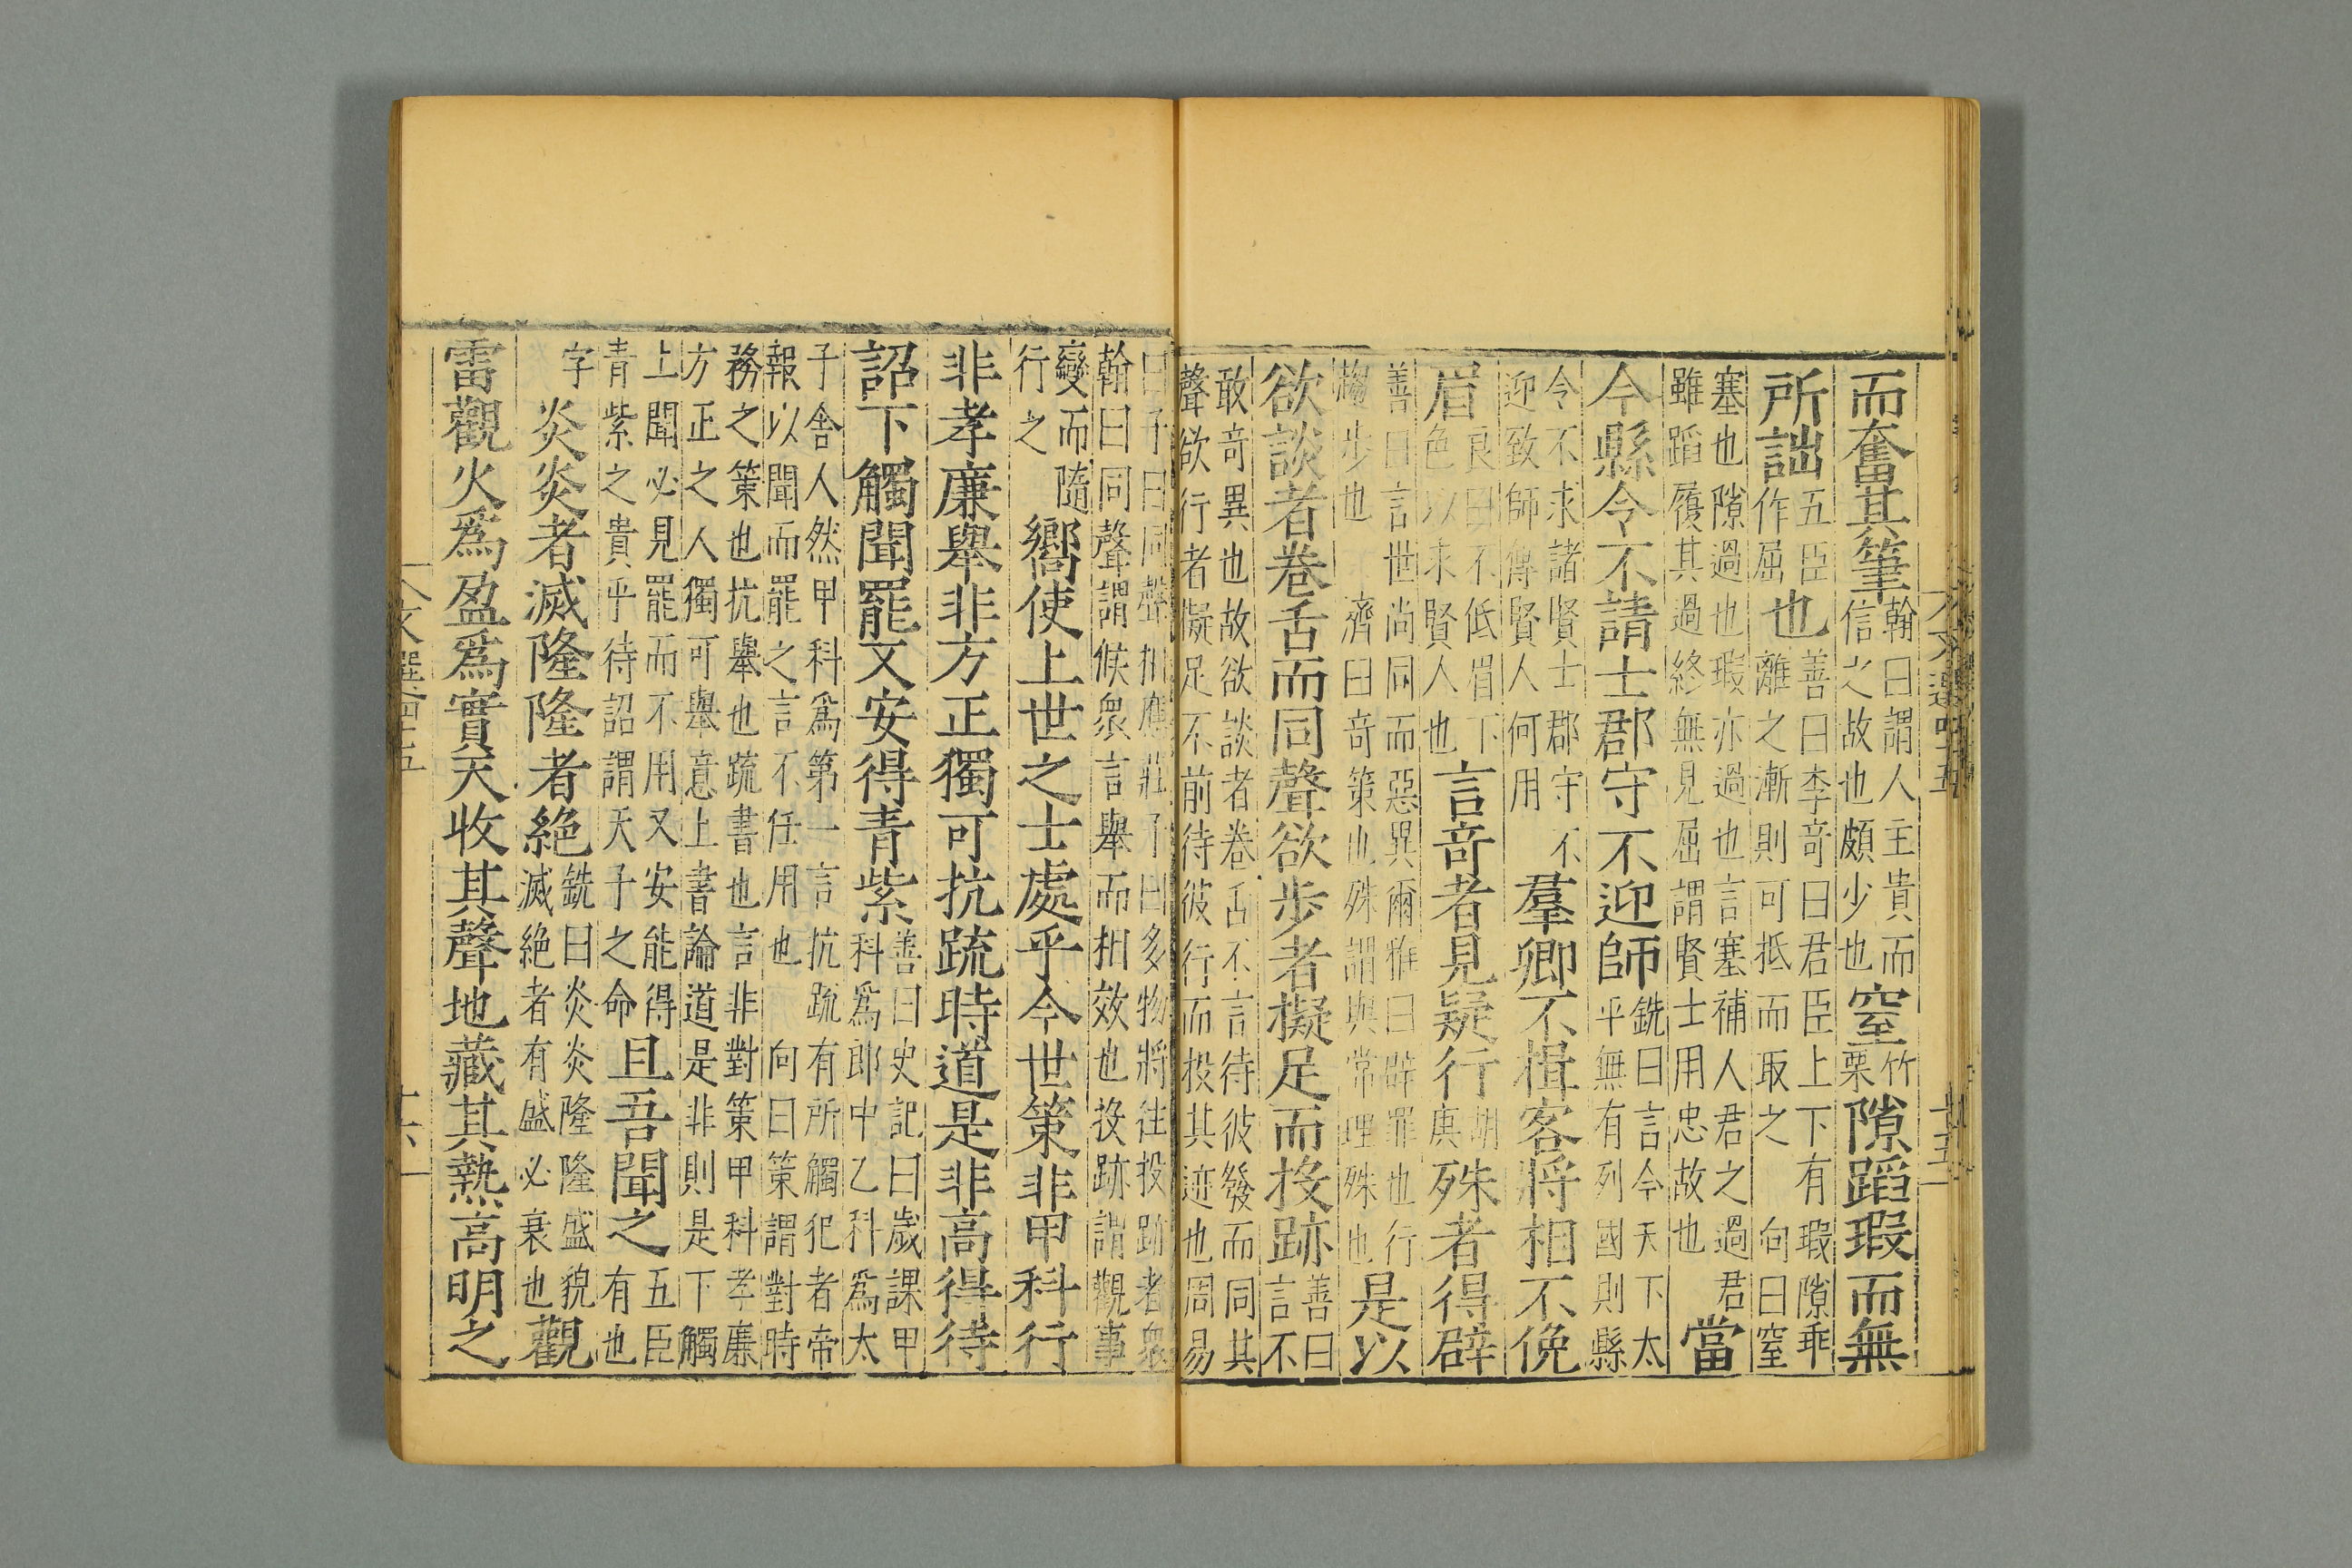 而奮其筆翰曰謂人主貴而信之故也頗少也窒竹栗隙蹈瑕而無
所詘五臣作屈也善曰李竒曰君臣上下有瑕隙乖離之漸則可抵而取之向曰窒
塞也隙過也瑕亦過也言塞補人君之過君雖蹈履其過終無見屈謂賢士用忠故也當
今縣令不請士郡守不迎師銑曰言今天下太平無有列國則縣
令不求諸賢士郡守不迎致師傅賢人何用羣卿不揖客將相不俛
眉良曰不低眉下色以求賢人也言竒者見疑行胡庚殊者得辟
善曰言世尚同而惡異爾雅曰辟罪也行趨步也濟曰竒策也殊謂與常理殊也是以
欲談者卷舌而同聲欲步者擬足而投跡善曰言不
敢竒異也故欲談者卷舌不言待彼發而同其聲欲行者擬足不前待彼行而投其迹也周易
曰子曰同聲相應莊子曰多物將往投跡者衆翰曰同聲謂候衆言舉而相效也投跡謂觀事
變而隨行之嚮使上世之士處乎今世策非甲科行
非孝廉舉非方正獨可抗疏時道是非高得待
詔下觸聞罷又安得青紫善曰史記曰歲課甲科爲郎中乙科爲太
子舍人然甲科爲第一言抗疏有所觸犯者帝報以聞而罷之言不任用也向曰策謂對時
務之策也抗舉也疏書也言非對策甲科孝廉方正之人獨可舉意上書論道是非則是下觸
上聞必見罷而不用又安能得青紫之貴乎待詔謂天子之命且吾聞之五臣有也有
字炎炎者滅隆隆者絕銑曰炎炎隆隆盛貌滅絕者有盛必衰也觀
雷觀火爲盈爲實天收其聲地藏其熱高明之